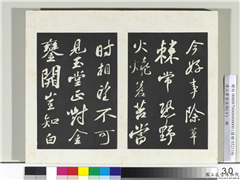 今好事除草
棘常恐野
火燒蒼苔當
時相望不可
見玉堂正對金
鑾開豈知白
30